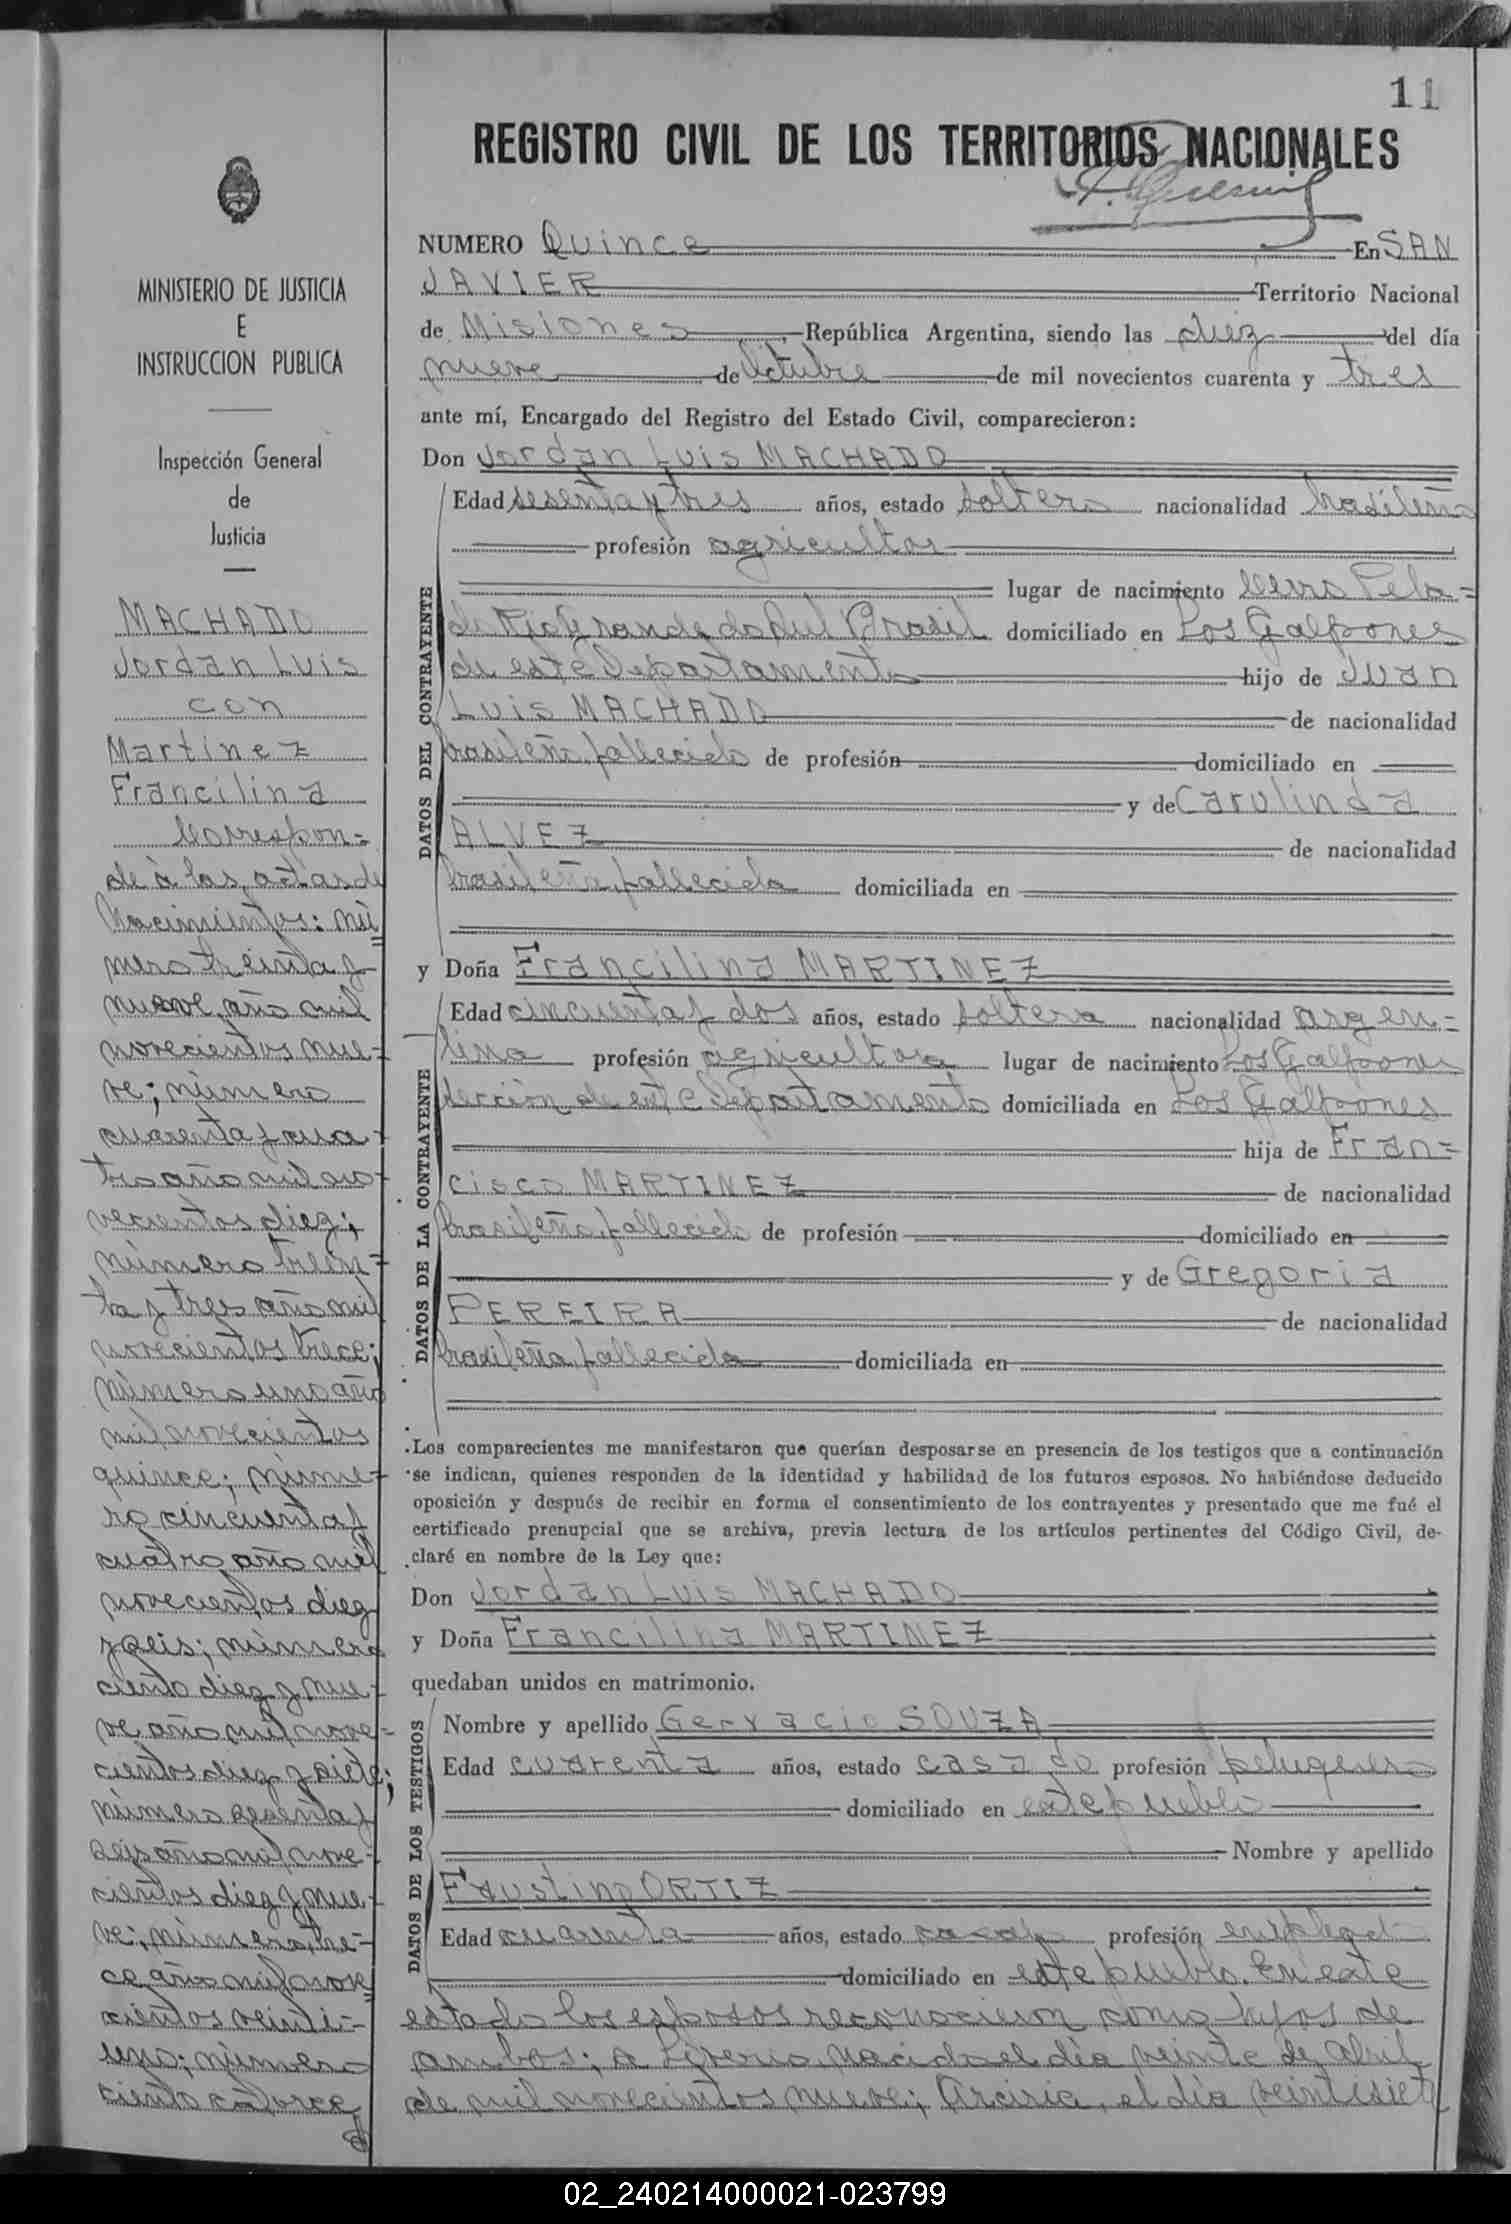 11
REGISTRO CIVIL DE LOS TERRITORIOS NACIONALES
NUMERO Quince En SAN
JAVIER Territorio Nacional
de Misiones, República Argentina, siendo las diez del día
nueve de Octubre de mil novecientos cuarenta y tres
ante mí, Encargado del Registro del Estado Civil, comparecieron:
Don Jordan Luis MACHADO
DATOS DEL CONTRAYENTE
Edad sesenta y tres años, estado soltero nacionalidad brasileña
profesión agricultor
lugar de nacimiento Cerro Pela=
do Rio Grande do Sul Brasil domiciliado en Los Galpones
de este Departamento hijo de Juan
Luis MACHADO de nacionalidad
brasileña, fallecido de profesión domiciliado en
y de Carolinda
ALVEZ de nacionalidad
brasileña, fallecida domiciliada en
y Doña Francilina MARTINEZ
DATOS DE LA CONTRAYENTE
Edad cincuenta y dos años, estado soltera nacionalidad argen=
tina profesión agricultora lugar de nacimiento Los Galpones
sección de este Departamento domiciliada en Los Galpones
hija de Fran=
cisco MARTINEZ de nacionalidad
brasileña, fallecido de profesión domiciliado en
y de Gregoria
PEREIRA de nacionalidad
brasileña, fallecida domiciliada en
Los comparecientes me manifestaron que querían desposarse en presencia de los testigos que a continuación
se indican, quienes responden de la identidad y habilidad de los futuros esposos. No habiéndose deducido
oposición y después de recibir en forma el consentimiento de los contrayentes y presentado que me fué el
certificado prenupcial que se archiva, previa lectura de los artículos pertinentes del Código Civil, de-
claré en nombre de la Ley que:
Don Jordan Luis MACHADO
y Doña Francilina MARTINEZ
quedaban unidos en matrimonio.
DATOS DE LOS TESTIGOS
Nombre y apellido Gervacio SOUZA
Edad cuarenta años, estado casado profesión peluquero
domiciliado en este pueblo
Nombre y apellido
Faustino ORTIZ
Edad cuarenta años, estado casado profesión empleado
domiciliado en este pueblo. En este
estado los esposos reconocieron como hijos de
ambos; a Liverio, nacido el día veinte de Abril
de mil novecientos nueve; Arciria, el día veintisiete
MINISTERIO DE JUSTICIA
E
INSTRUCCION PUBLICA
Inspección General
de
Justicia
MACHADO
Jordan Luis
con
Martinez
Francilina
Correspon=
de à las actas de
Nacimientos: nú=
mero treinta y
nueve, año mil
novecientos nue-
ve; número
cuarenta y cua-
tro año mil no-
vecientos diez;
número trein-
ta y tres año mil
novecientos trece;
número uno año
mil novecientos
quince; núme-
ro cincuenta y
cuatro año mil
novecientos diez
y seis; número
ciento diez y nue-
ve año mil nove-
cientos diez y siete;
número sesenta y
seis año mil nove-
cientos diez y nue-
ve; número tre-
ce año mil nove=
cientos veinti-
uno; número
ciento catorce
02_240214000021-023799